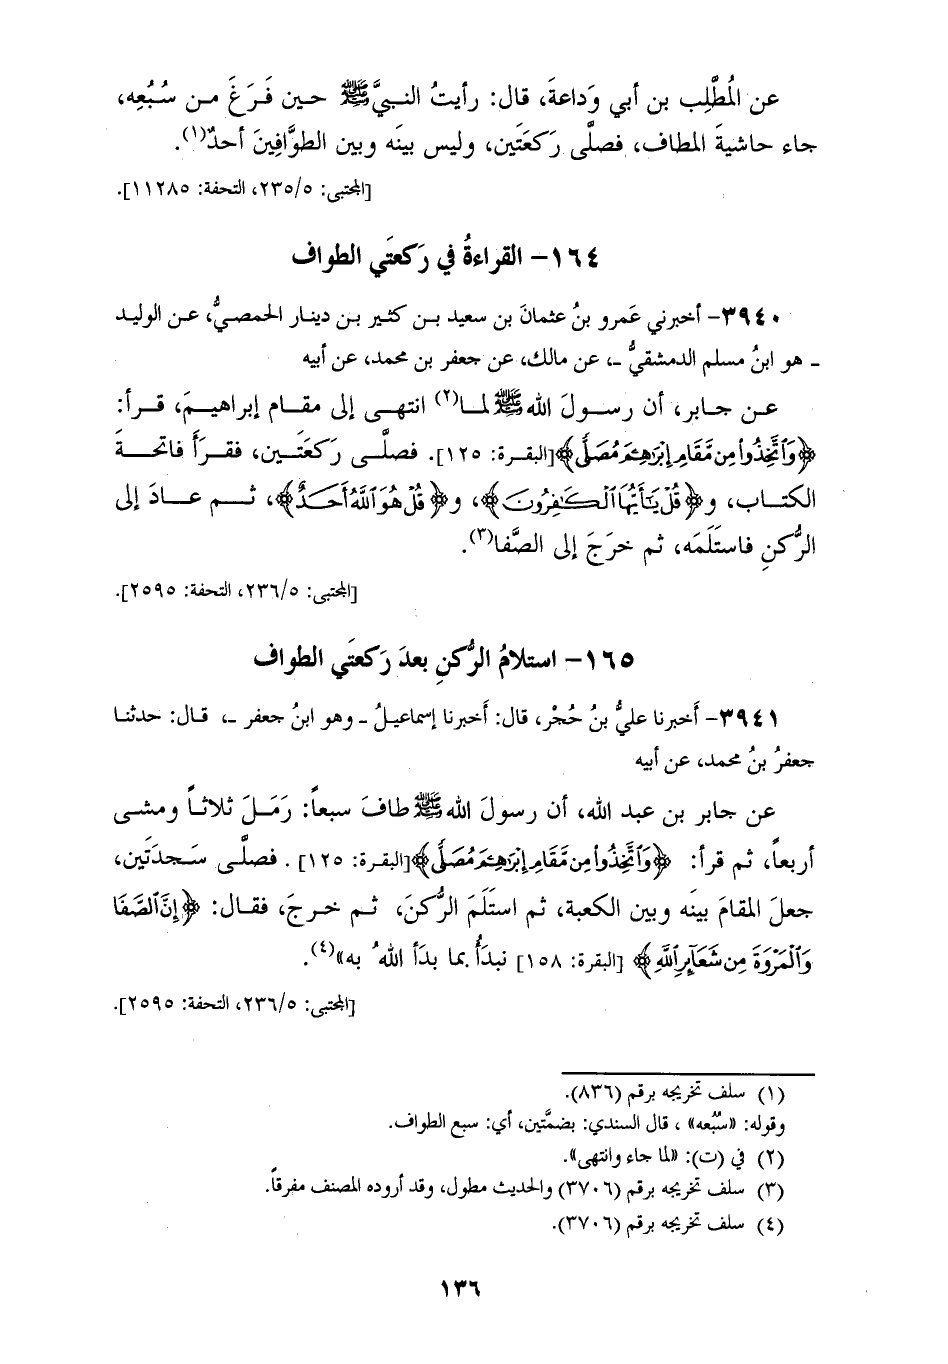 عن المُطَّلِب بن أبي وَداعةَ، قال: رأيتُ النبيَّ ﷺ حين فَرَغَ من سُبُعِه،
جاء حاشيةَ المطاف، فصلَّى رَكعَتَين، وليس بينَه وبين الطوَّافِينَ أحدٌ(١).
[المجتبى: ٢٣٥/٥، التحفة: ١١٢٨٥].
١٦٤- القراءةُ في رَكعتَي الطواف
٣٩٤٠- أخبرني عَمرو بنُ عثمانَ بن سعيد بن كثير بن دينار الحمصيُّ، عن الوليد
ـ هو ابنُ مسلم الدمشقيُّ ـ، عن مالك، عن جعفر بن محمد، عن أبيه
عن جابر، أن رسولَ الله ﷺ لما(٢) انتهى إلى مقام إبراهيمَ، قرأ:
﴿وَٱتَّخِذُواْ مِن مَّقَامِ إِبْرَٰهِـۧمَ مُصَلًّى﴾ [البقرة: ١٢٥]. فصلَّى رَكعَتَين، فقرَأَ فاتحةَ
الكتاب، و﴿قُلْ يَٰٓأَيُّهَا ٱلْكَٰفِرُونَ﴾، و﴿قُلْ هُوَ ٱللَّهُ أَحَدٌ﴾، ثم عادَ إلى
الرُّكنِ فاستَلَمَه، ثم خرَجَ إلى الصَّفا(٣).
[المجتبى: ٢٣٦/٥، التحفة: ٢٥٩٥].
١٦٥- استلامُ الرُّكنِ بعدَ رَكعتَي الطواف
٣٩٤١- أَخبرنا عليُّ بنُ حُجْر، قال: أَخبرنا إسماعيلُ ـ وهو ابنُ جعفر ـ، قال: حدثنا
جعفرُ بنُ محمد، عن أبيه
عن جابر بن عبد الله، أن رسولَ الله ﷺ طافَ سبعاً: رَمَلَ ثلاثاً ومشى
أربعاً، ثم قرأ: ﴿وَٱتَّخِذُواْ مِن مَّقَامِ إِبْرَٰهِـۧمَ مُصَلًّى﴾ [البقرة: ١٢٥]. فصلَّى سَجدَتَين،
جعلَ المقامَ بينَه وبين الكعبة، ثم استَلَمَ الرُّكنَ، ثم خرجَ، فقال: ﴿إِنَّ ٱلصَّفَا
وَٱلْمَرْوَةَ مِن شَعَآئِرِ ٱللَّهِ﴾ [البقرة: ١٥٨] نبدَأُ بما بدَأَ اللهُ به»(٤).
[المجتبى: ٢٣٦/٥، التحفة: ٢٥٩٥].
(١) سلف تخريجه برقم (٨٣٦).
وقوله: «سُبُعه» ، قال السندي: بضمَّتين، أي: سبع الطواف.
(٢) في (ت): «لما جاء وانتهى».
(٣) سلف تخريجه برقم (٣٧٠٦) والحديث مطول، وقد أروده المصنف مفرقاً.
(٤) سلف تخريجه برقم (٣٧٠٦).
١٣٦